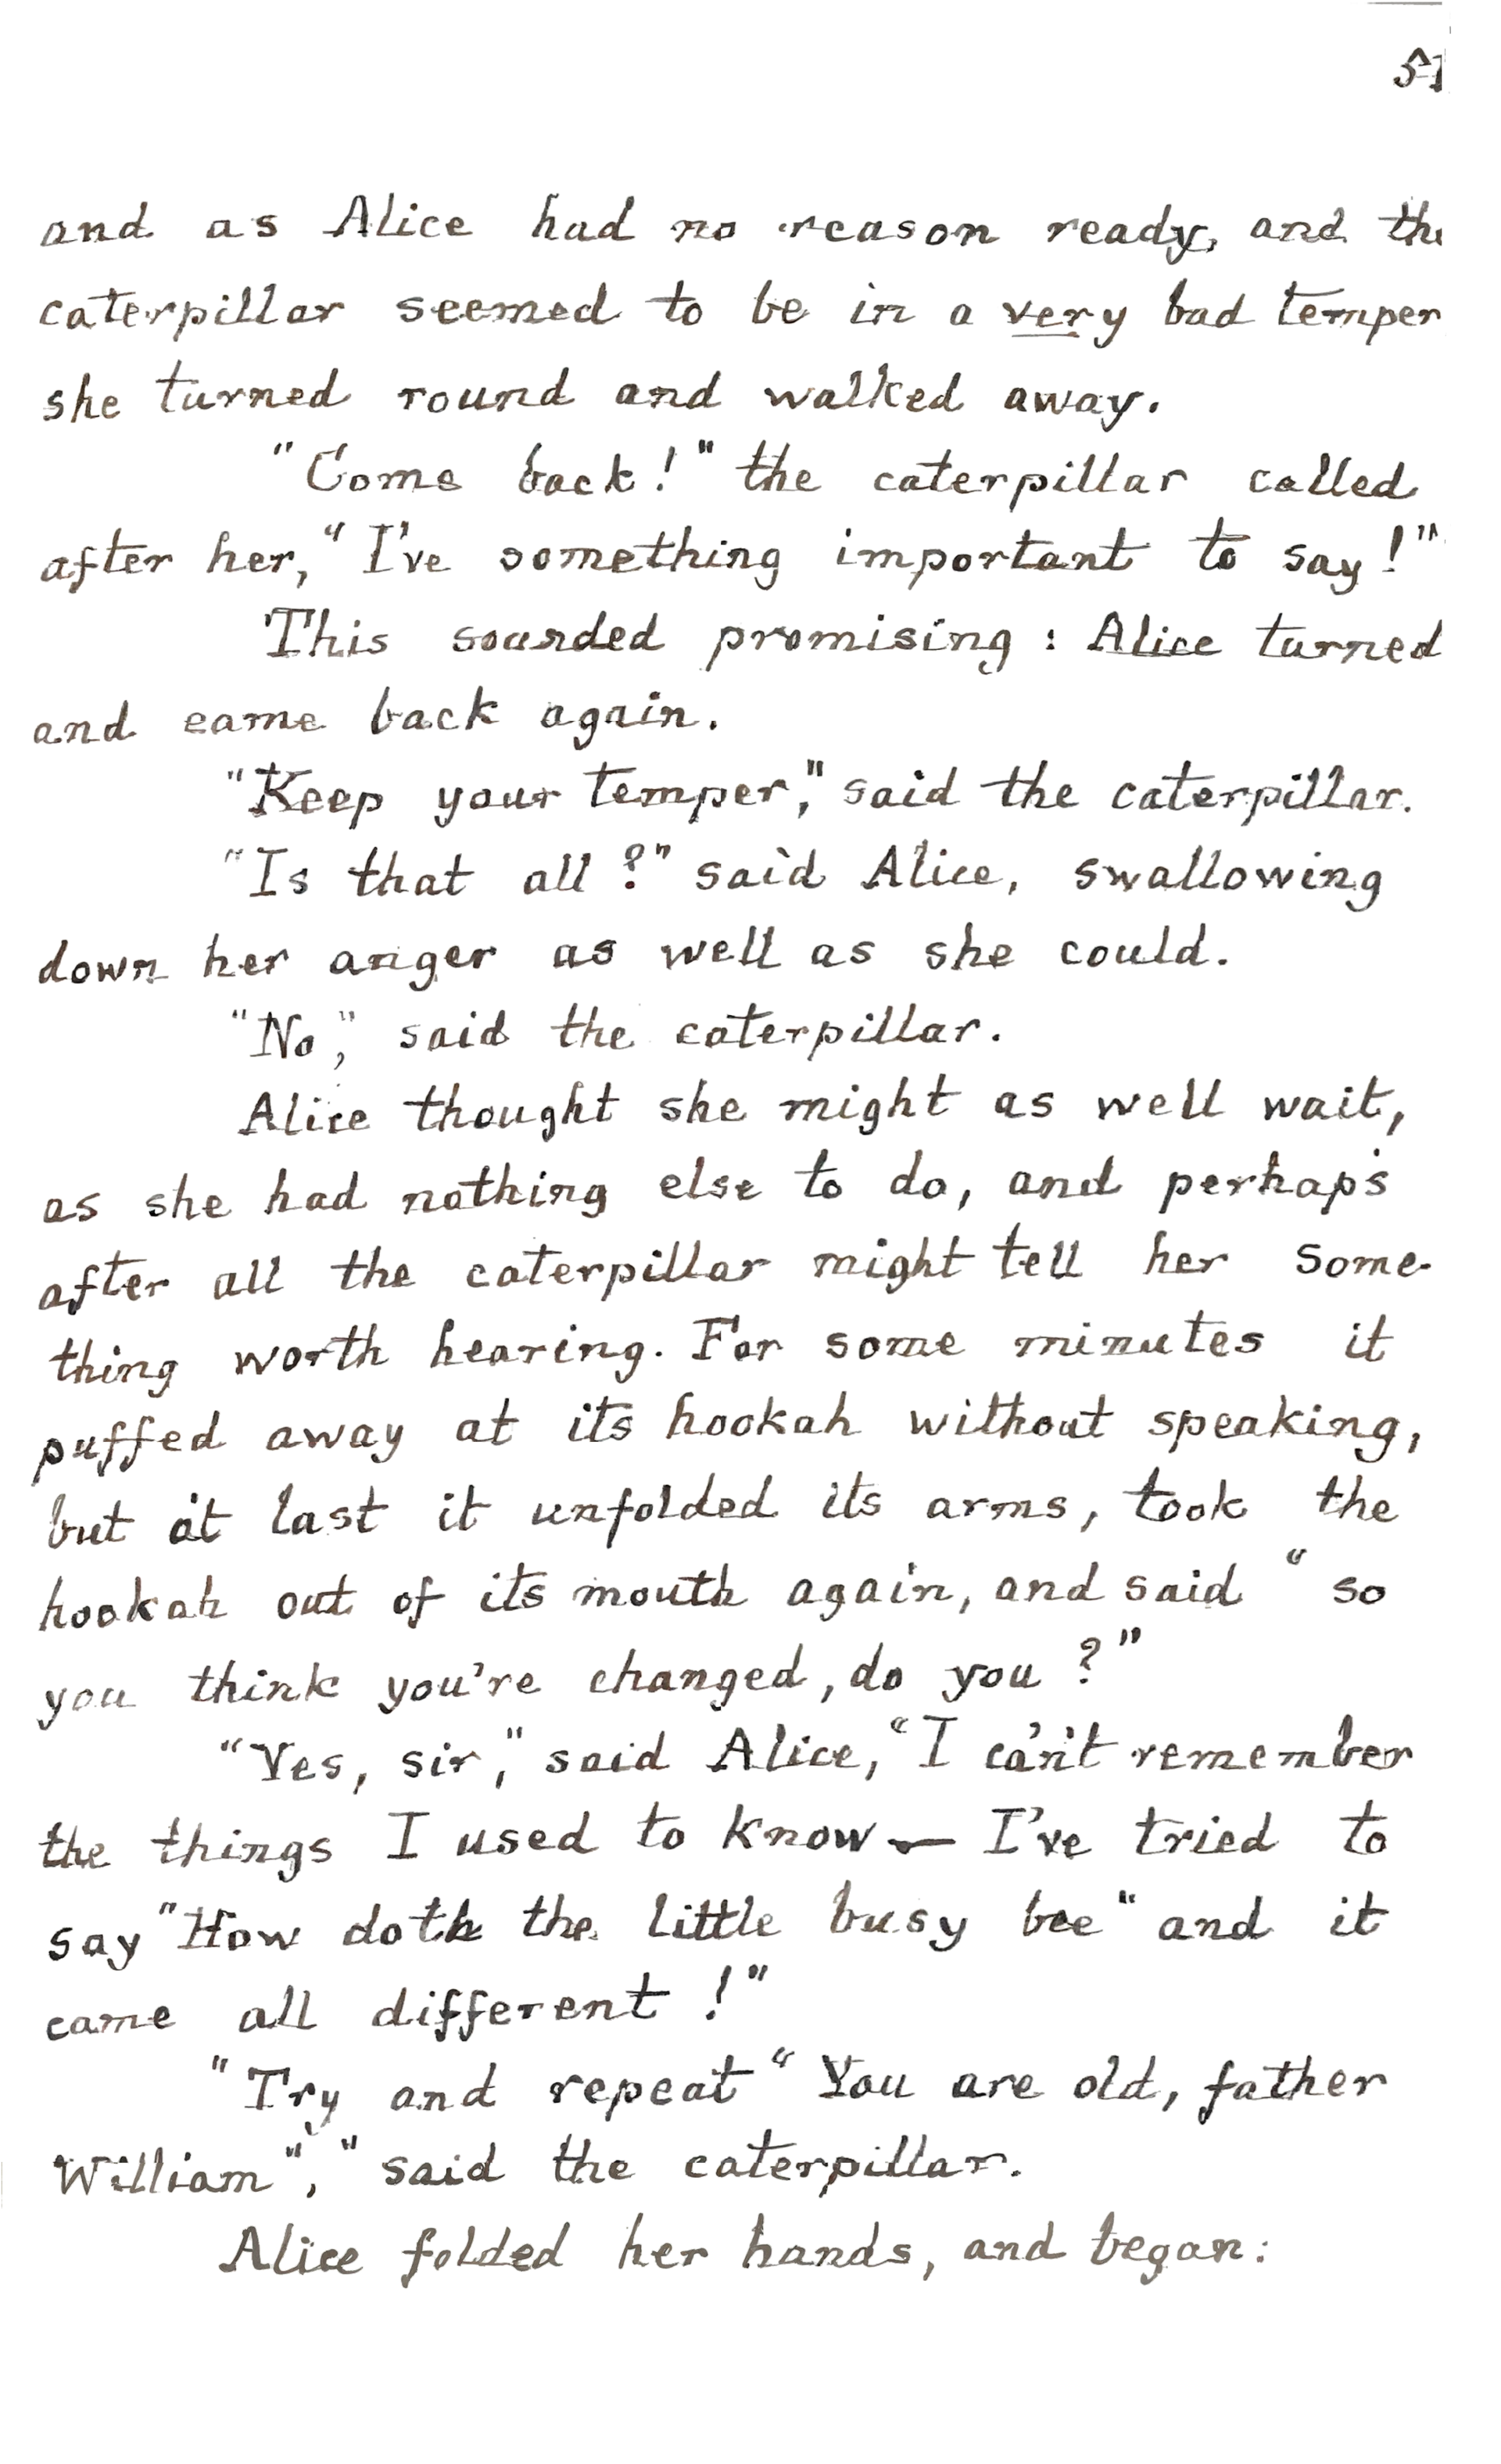 and as Alice had no reason ready, and the
caterpillar seemed to be in a very bad temper
she turned round and walked away.
"Come back!" the caterpillar called
after her, "I've something important to say!"
This sounded promising: Alice turned
and came back again.
"Keep your temper," said the caterpillar.
"Is that all?" said Alice, swallowing
down her anger as well as she could.
"No," said the caterpillar.
Alice thought she might as well wait,
as she had nothing else to do, and perhaps
after all the caterpillar might tell her some-
thing worth hearing. For some minutes it
puffed away at its hookah without speaking,
but at last it unfolded its arms, took the
hookah out of its mouth again, and said "so
you think you're changed, do you?"
"Yes, sir," said Alice, "I ca'n't remember
the things I used to know — I've tried to
say "How doth the little busy bee" and it
came all different!"
"Try and repeat "You are old, father
William"," said the caterpillar.
Alice folded her hands, and began: